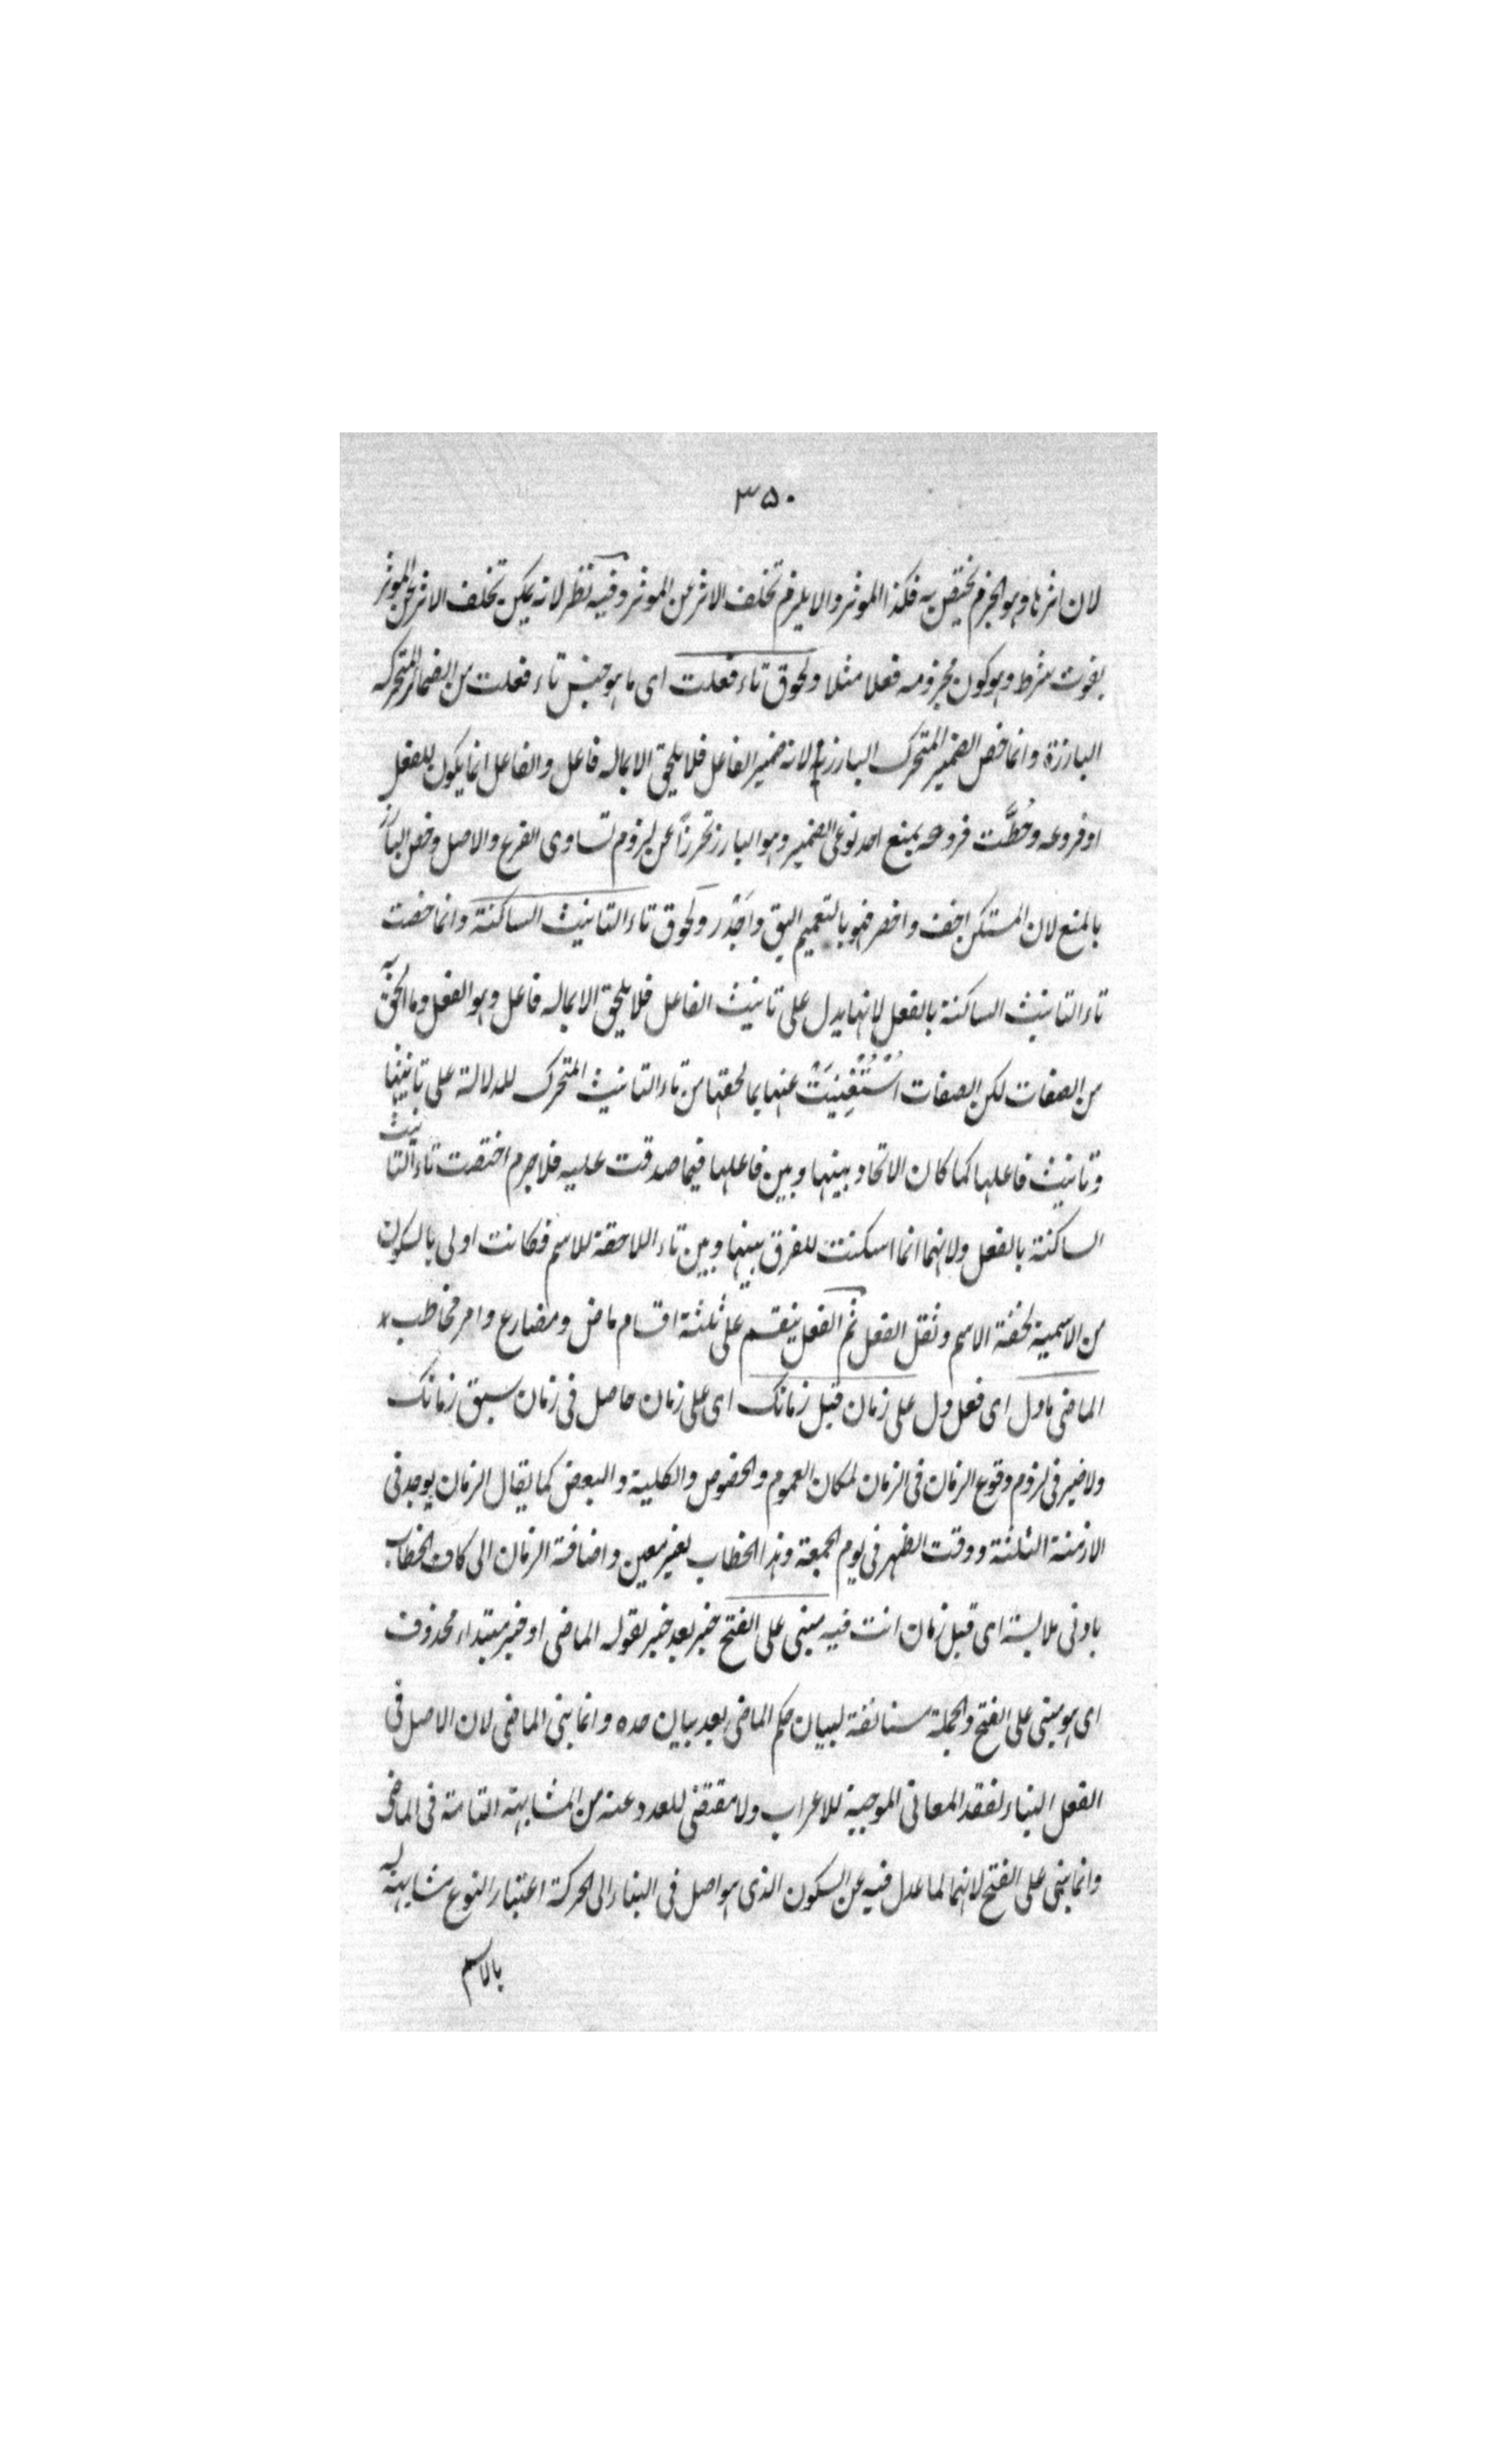 ٣٥٠
لان اثرها وهو الجزم يختص به فكذا الموثر والا يلزم تخلف الاثر عن الموثر وفيه نظر لانه يمكن تخلف الاثر عن الموثر
بفوت شرط وهو كون مجزومه فعلا مثلا ولحوق تاء فعلت اى ما هو جنس تاء فعلت من الضمائر المتحركه
البارزة وانما خص الضمير المتحرك البارز به لانه ضمير الفاعل فلا يلحق الا بما له فاعل والفاعل انما يكون للفعل
او فروعه وحُطَّت فروعه بمنع احد نوعى الضمير وهو البارز تحرزاً عن لزوم تساوى الفرع والاصل وخص البارز
بالمنع لان المستكن اخف واخصر فهو بالتعميم اليق واَجْدَر ولَحوق تاء التانيث الساكنة وانما خصت
تاء التانيث الساكنة بالفعل لانها يدل على تانيث الفاعل فلا يلحق الا بما له فاعل وهو الفعل وما الحق به
من الصفات لكن الصفات اُسْتُغْنِيَتْ عنها بما لحقتها من تاء التانيث المتحرك للدلالة على تانيثها
وتانيث فاعلها كما كان الاتحاد بينها وبين فاعلها فيما صدقت عليه فلا جرم اختصت تاء التانيث
الساكنة بالفعل ولانهما انما اسكنت للفرق بينها وبين تاء اللاحقة للاسم فكانت اولى بالسكون
من الاسمية لخفة الاسم وثقل الفعل ثم الفعل ينقسم على ثلثة اقسام ماض ومضارع وامر مخاطب
الماضى ما دل اى فعل دل على زمان قبل زمانك اى على زمان حاصل فى زمان سبق زمانك
ولا ضير فى لزوم وقوع الزمان فى الزمان لمكان العموم والخصوص والكلية والبعض كما يقال الزمان يوجد فى
الازمنة الثلثة ووقت الظهر فى يوم الجمعة وهذا الخطاب لغير معين واضافة الزمان الى كاف الخطاب
بادنى ملابسة اى قبل زمان انت فيه مبنى على الفتح خبر بعد خبر لقوله الماضى او خبر مبتداء محذوف
اى هو مبنى على الفتح والجملة مستانفة لبيان حكم الماضى بعد بيان حده وانما بنى الماضى لان الاصل فى
الفعل البناء لفقد المعانى الموجبة للاعراب ولا مقتضى للعدو عنه من المشابهة التامة فى الماضى
وانما بنى على الفتح لانهما لما عدل فيه عن السكون الذى هو اصل فى البناء الى الحركة اعتبار النوع مشابهة له
بالاسم